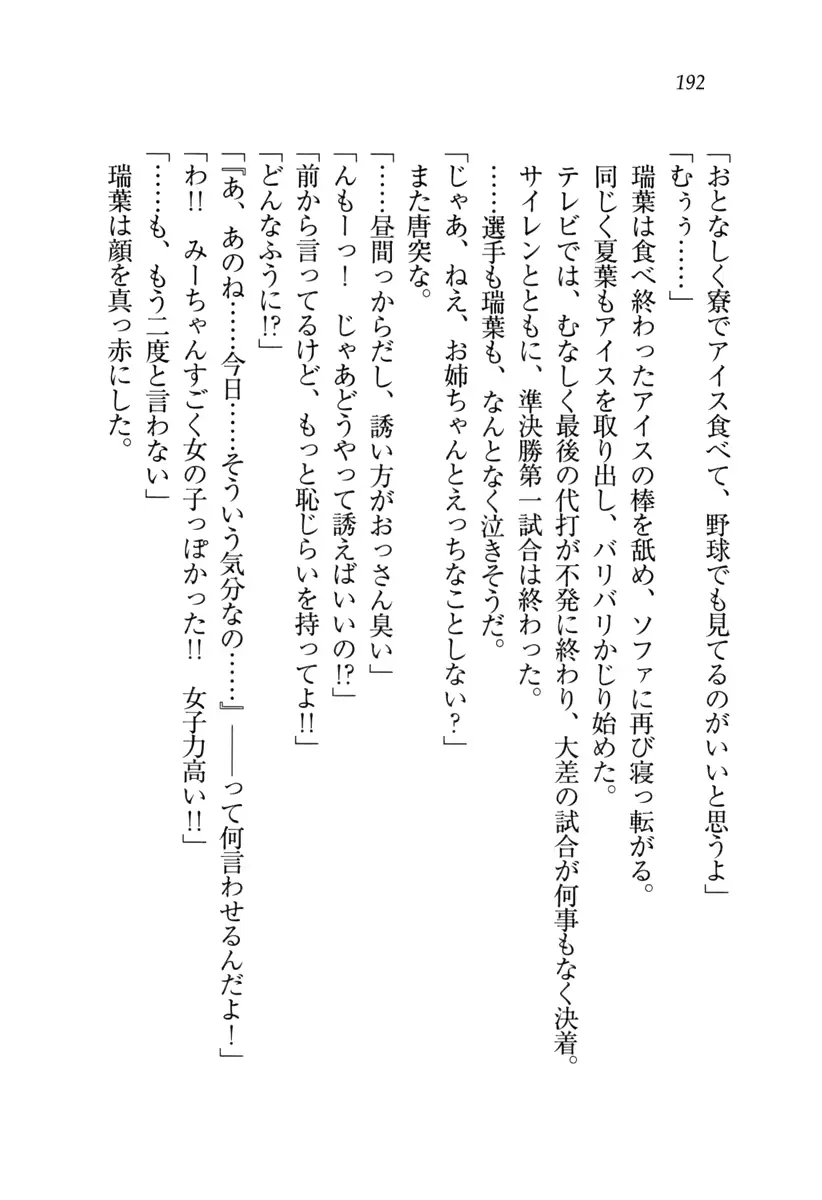 192
「おとなしく寮でアイス食べて、野球でも見てるのがいいと思うよ」
「むぅぅ……」
瑞葉は食べ終わったアイスの棒を舐め、ソファに再び寝っ転がる。
同じく夏葉もアイスを取り出し、バリバリかじり始めた。
テレビでは、むなしく最後の代打が不発に終わり、大差の試合が何事もなく決着。
サイレンとともに、準決勝第一試合は終わった。
……選手も瑞葉も、なんとなく泣きそうだ。
「じゃあ、ねえ、お姉ちゃんとえっちなことしない?」
また唐突な。
「……昼間っからだし、誘い方がおっさん臭い」
「んもーっ! じゃあどうやって誘えばいいの!?」
「前から言ってるけど、もっと恥じらいを持ってよ!!」
「どんなふうに!?」
「『あ、あのね……今日……そういう気分なの……』――って何言わせるんだよ!」
「わ!! みーちゃんすごく女の子っぽかった!! 女子力高い!!」
「……も、もう二度と言わない」
瑞葉は顔を真っ赤にした。